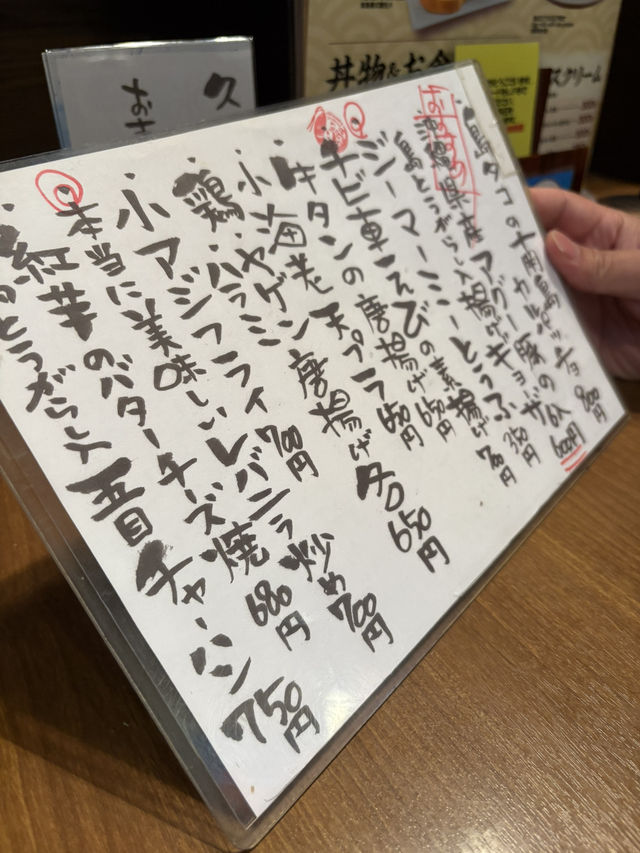 島タコのカルパッチョ 800円
おすすめ
沖縄県産アグー豚の
(島とうがらし入)揚げギョーザ 6入 600円
・ジーマーミーとうふ 350円
・チビ車えびの素揚げ 700円
・牛タンの唐揚げ 650円
・小海老天プラ 650円
・鶏 ヤゲン ハラミ 唐揚げ 各650円
・小アジフライ 700円
・本当に美味しいレバニラ炒め 700円
・紅芋のバターチーズ焼 680円
とうがらし入 五目チャーハン 750円
丼物&お食
スクリーム
久
おさ